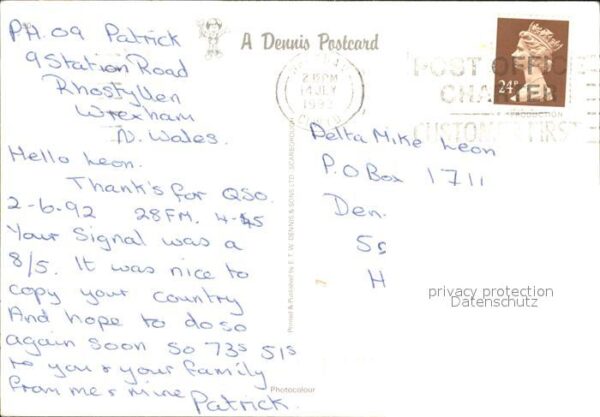 PA.09 Patrick
9 Station Road
Rhostyllen
Wrexham
N. Wales.
Hello Leon.
Thank's for QSO.
2-6-92 28FM. 4-45
Your Signal was a
8/5. It was nice to
copy your country
And hope to do so
again soon so 73s 51s
to you & your family
from me & mine
Patrick.
A Dennis Postcard
2.15PM
14 JLY
POST OFFICE
CHARTER
CUSTOMER FIRST
24P
Delta Mike Leon
P.O Box 1711
Den.
H
Printed & Published by E. T. W. DENNIS & SONS LTD., SCARBOROUGH
Photocolour
privacy protection
Datenschutz